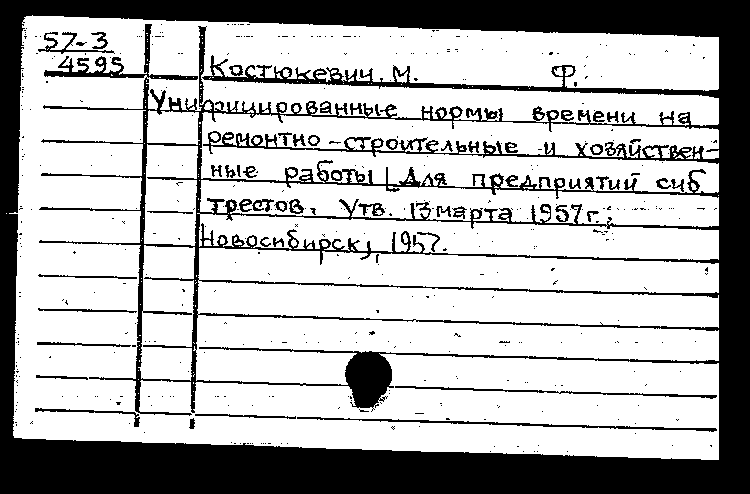 57-3
4595
Костюкевич, М. Ф.
Унифицированные нормы времени на
ремонтно-строительные и хозяйствен-
ные работы [Для предприятий сиб.
трестов. Утв. 13 марта 1957 г.;
Новосибирск], 1957.